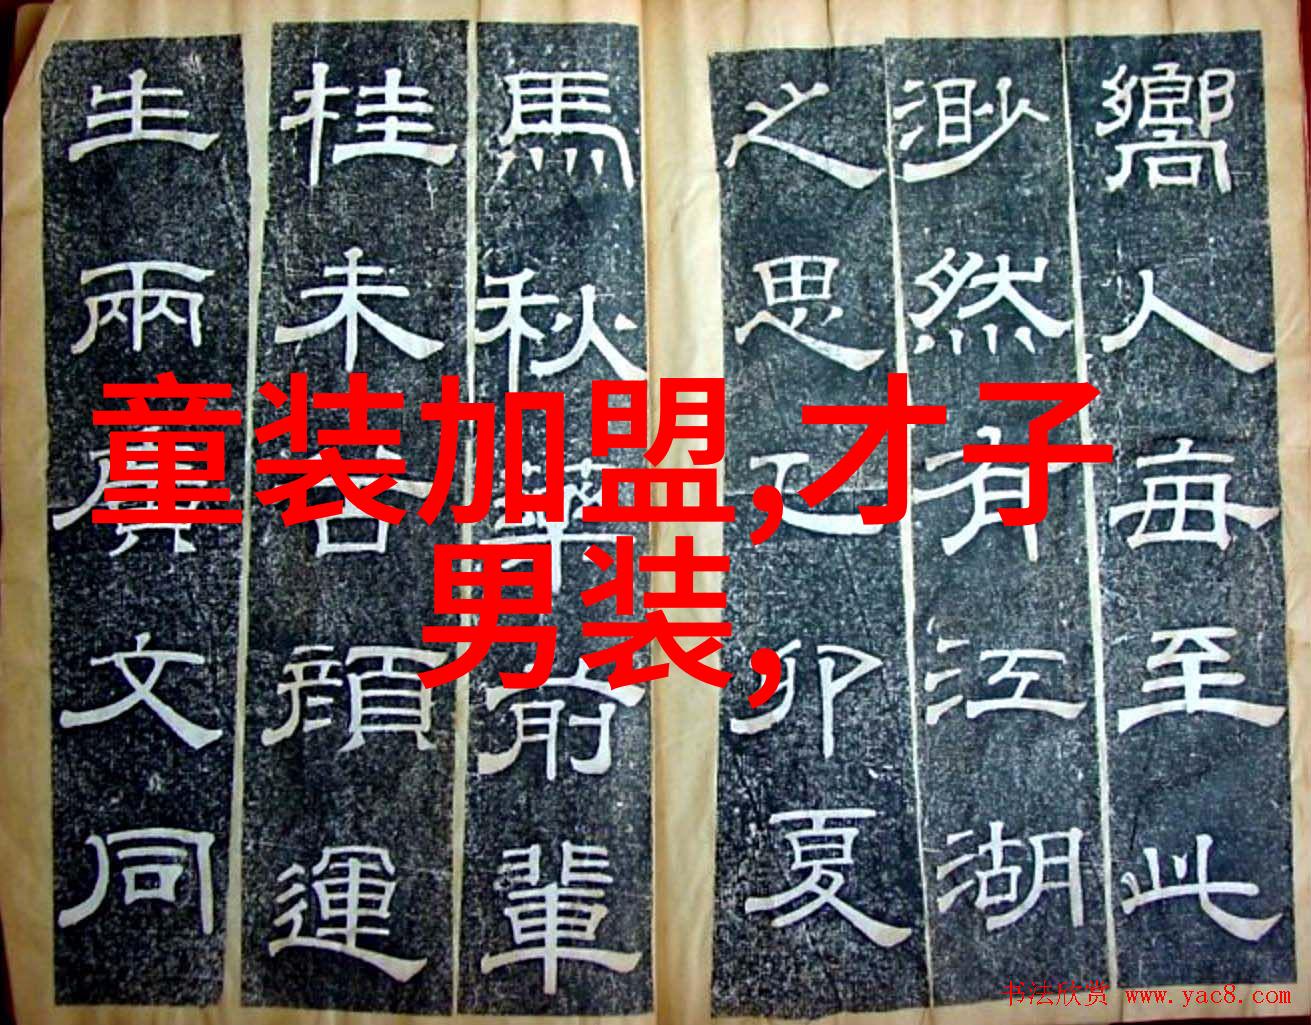 童装加盟,才子
男装,
嚮人每至此
渺然有江湖
之思卯夏
馬秋藥前輩
桂未谷顏運
生兩廣文同
书法欣赏 www.yac8.com